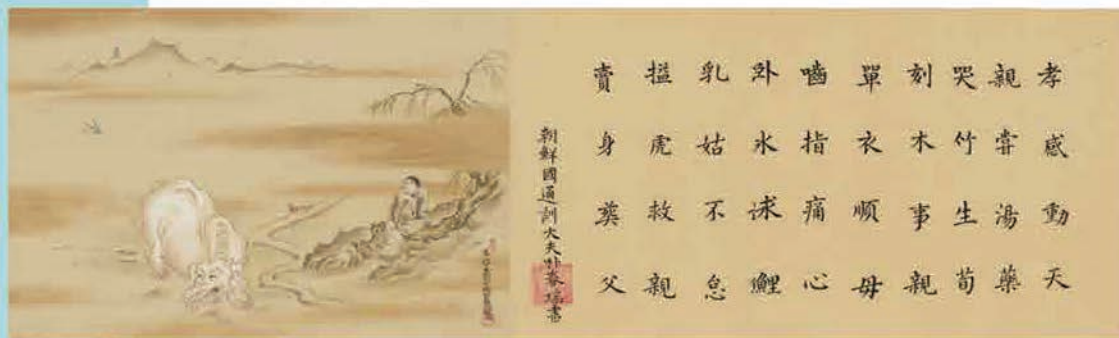 孝感動天
親嘗湯藥
哭竹生筍
刻木事親
單衣順母
嚙指痛心
卧氷求鯉
乳姑不怠
搤虎救親
賣身葬父
朝鮮國通訓大夫朴春瑞書